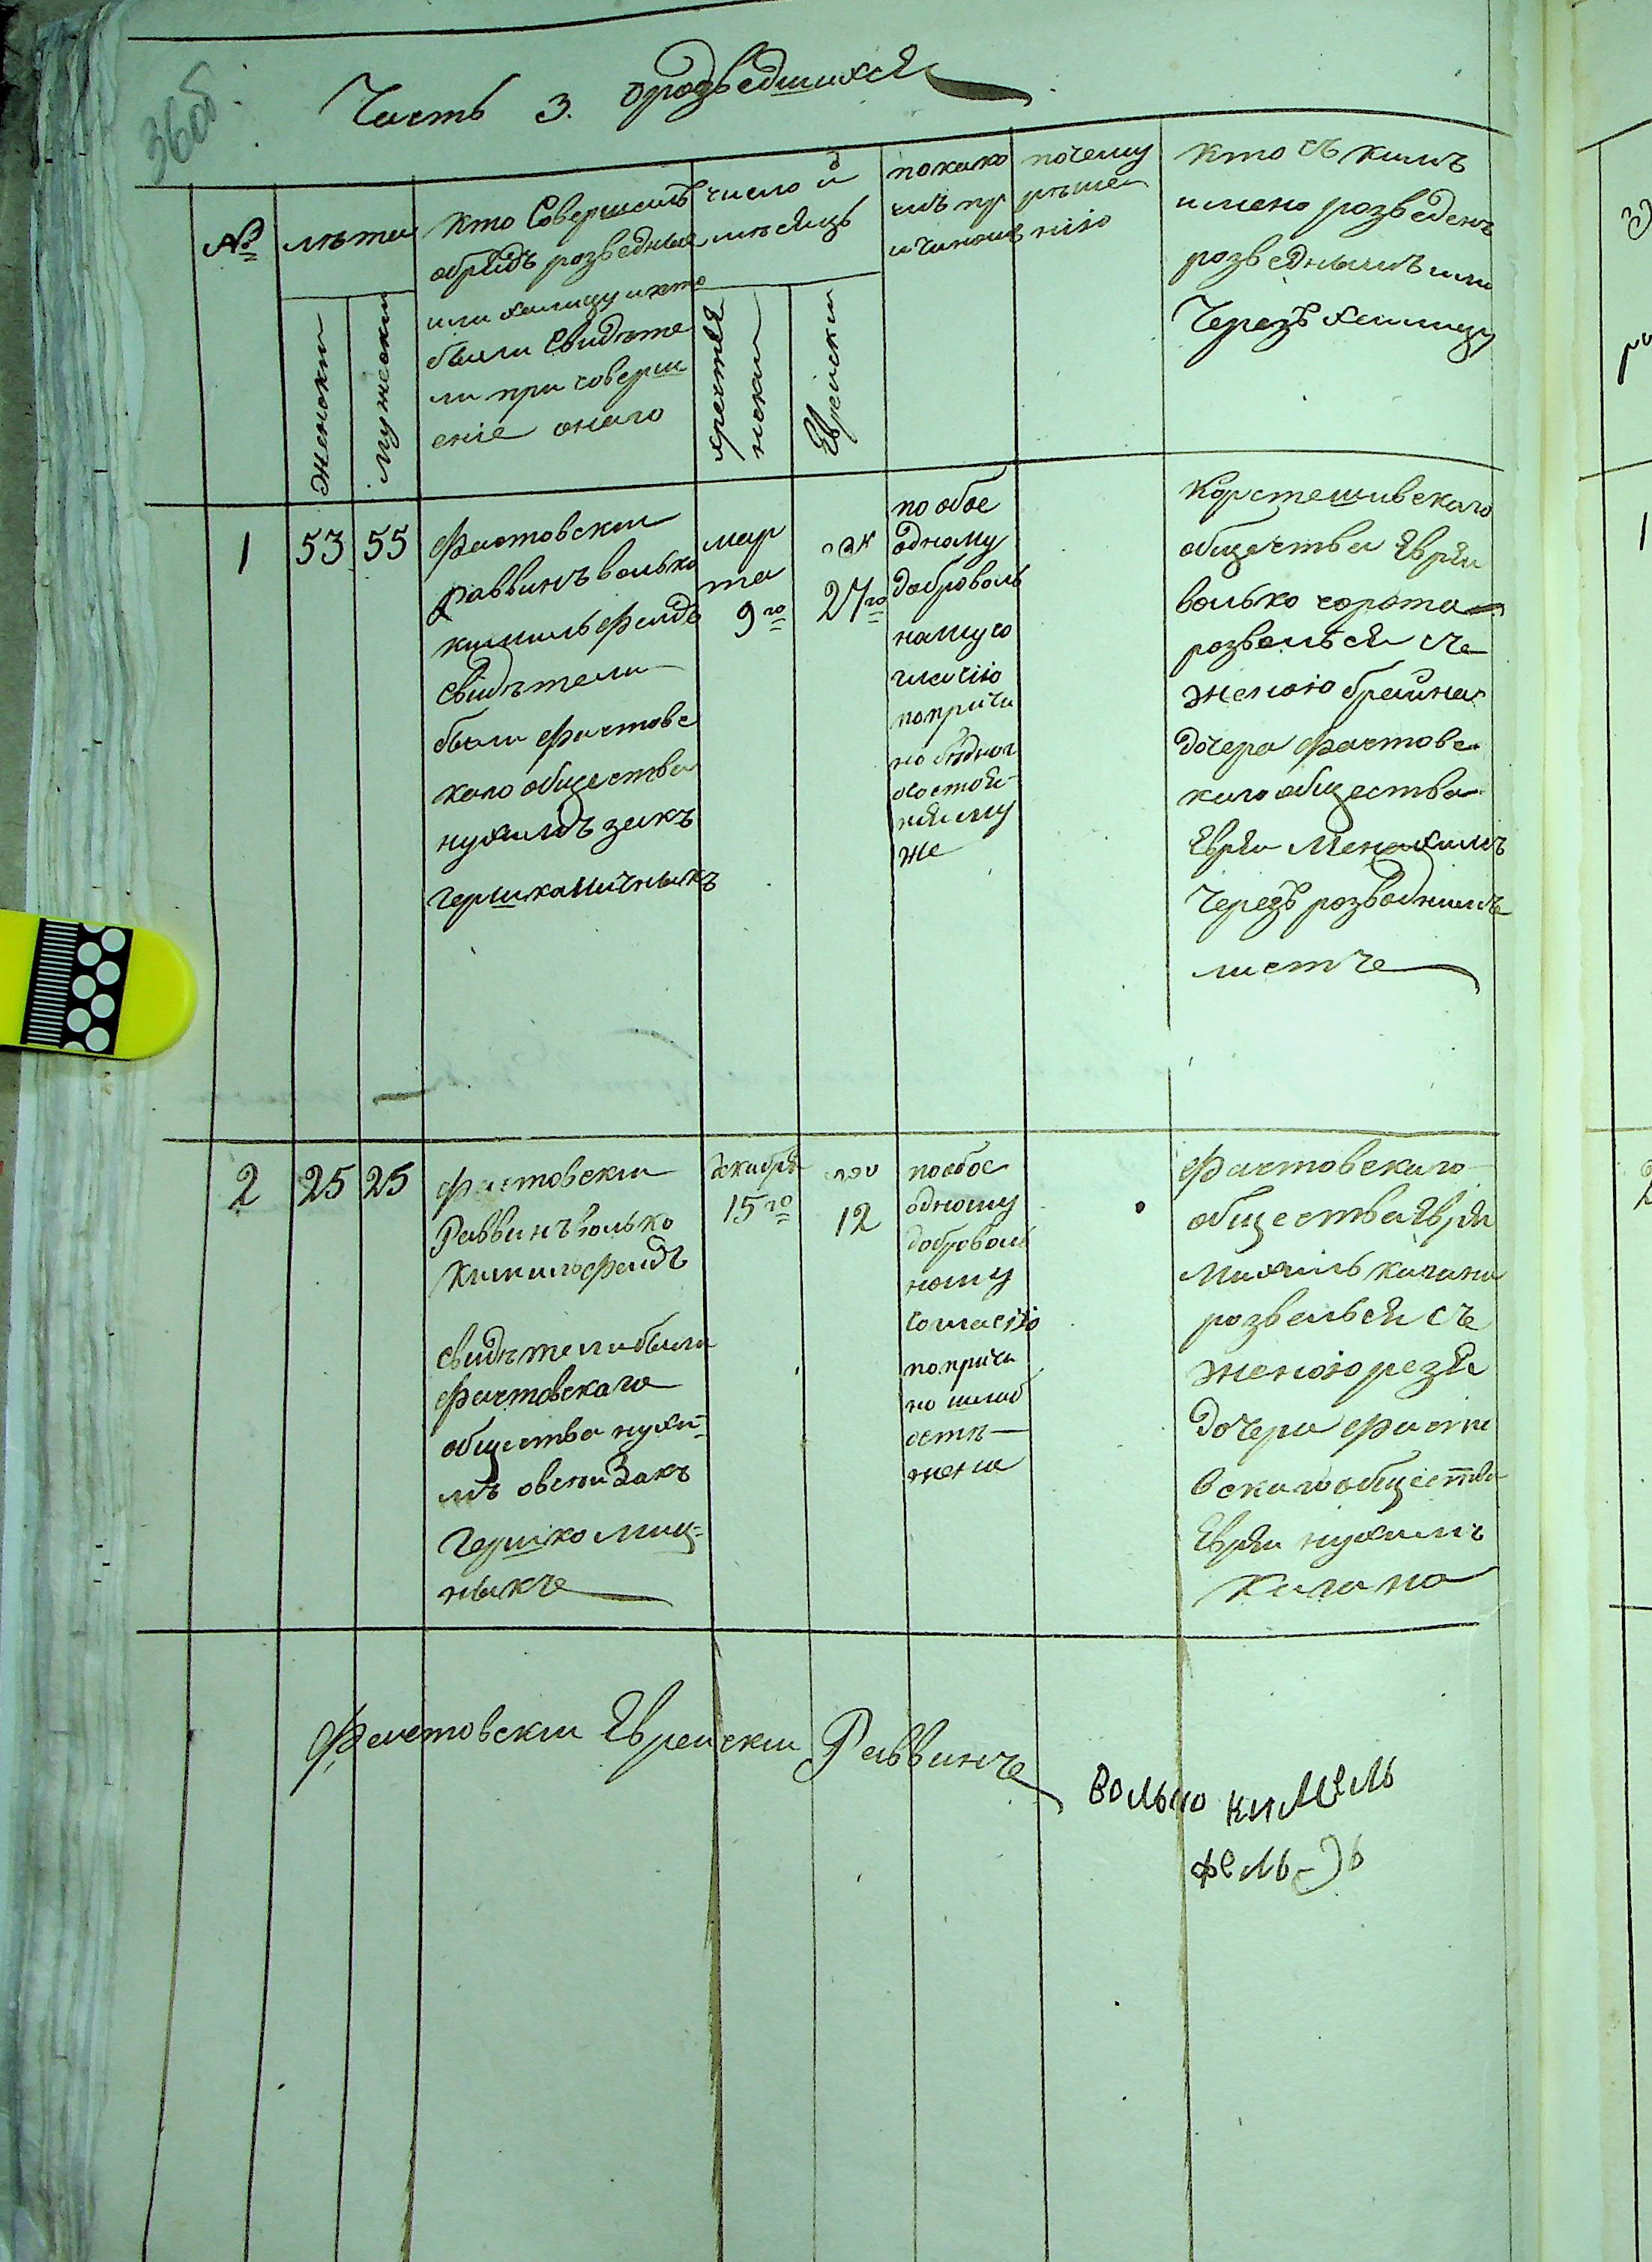 36об
Часть 3. оразведшихся
№
лѣта
Женски
Мужески
кто Совершилъ
обрядъ розведные
или халицу и кто
были Свидѣте
ли при соверш
еніе онаго
число и
мѣсяцъ
христіа
нскии
Еврейски
покако
мъ пр
ичинам
почему
рѣше
нію
кто съ кимъ
имено розведенъ
розведнымъ или
Черезъ халицу
1
53
55
Фастовски
раввинъ волько
кимиль фелдъ
свидѣтели
были фастовс
каго общества
нухимъ закъ
гершка
мар
та
9го
27го
по обое
одному
доброволь
ному со
гласію
попричи
но бѣдног
состоя
ния му
же
Корстешивскаго
общества Евреи
волько сорота
розвелься съ
женою брайна
дочера фастовс
каго общества
Евреи Менахимъ
Черезъ розводнимъ
листъ
2
25
25
Фастовски
Раввинъ волько
Кимильфелдъ
свидѣтели были
фастовскаго
общества нухи-
мъ овсеи Закъ
Гершко миц-
никъ
декабря
15го
12
пообое
одному
доброволь
ному
согласію
попричи
но слаб
ость
жены
Фастовскаго
общества Евреи
Михиль кагана
розвелься съ
женою резя
дочери фасто
вскаго общества
Евреи нухимъ
Кагана
Фастовски Еврейски Раввинъ
волько кимель
фель-дь